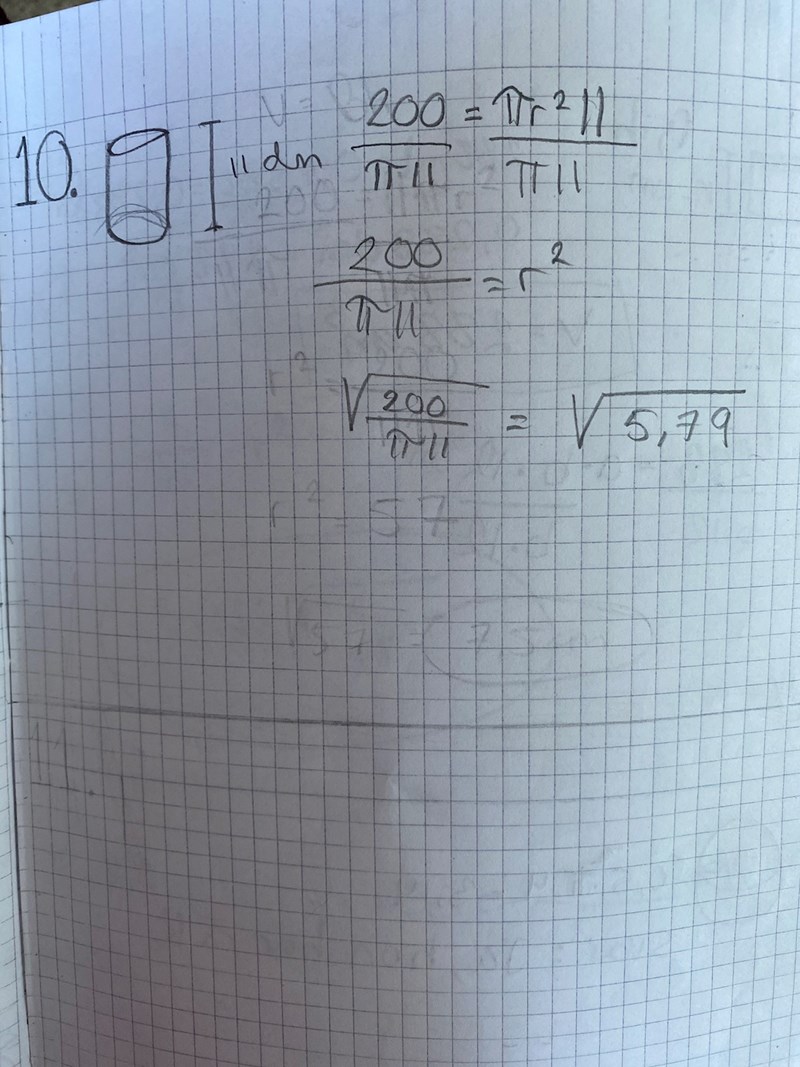 10. 11 dm 200/π11 = πr²11/π11
200/π11 = r²
√(200/π11) = √5,79